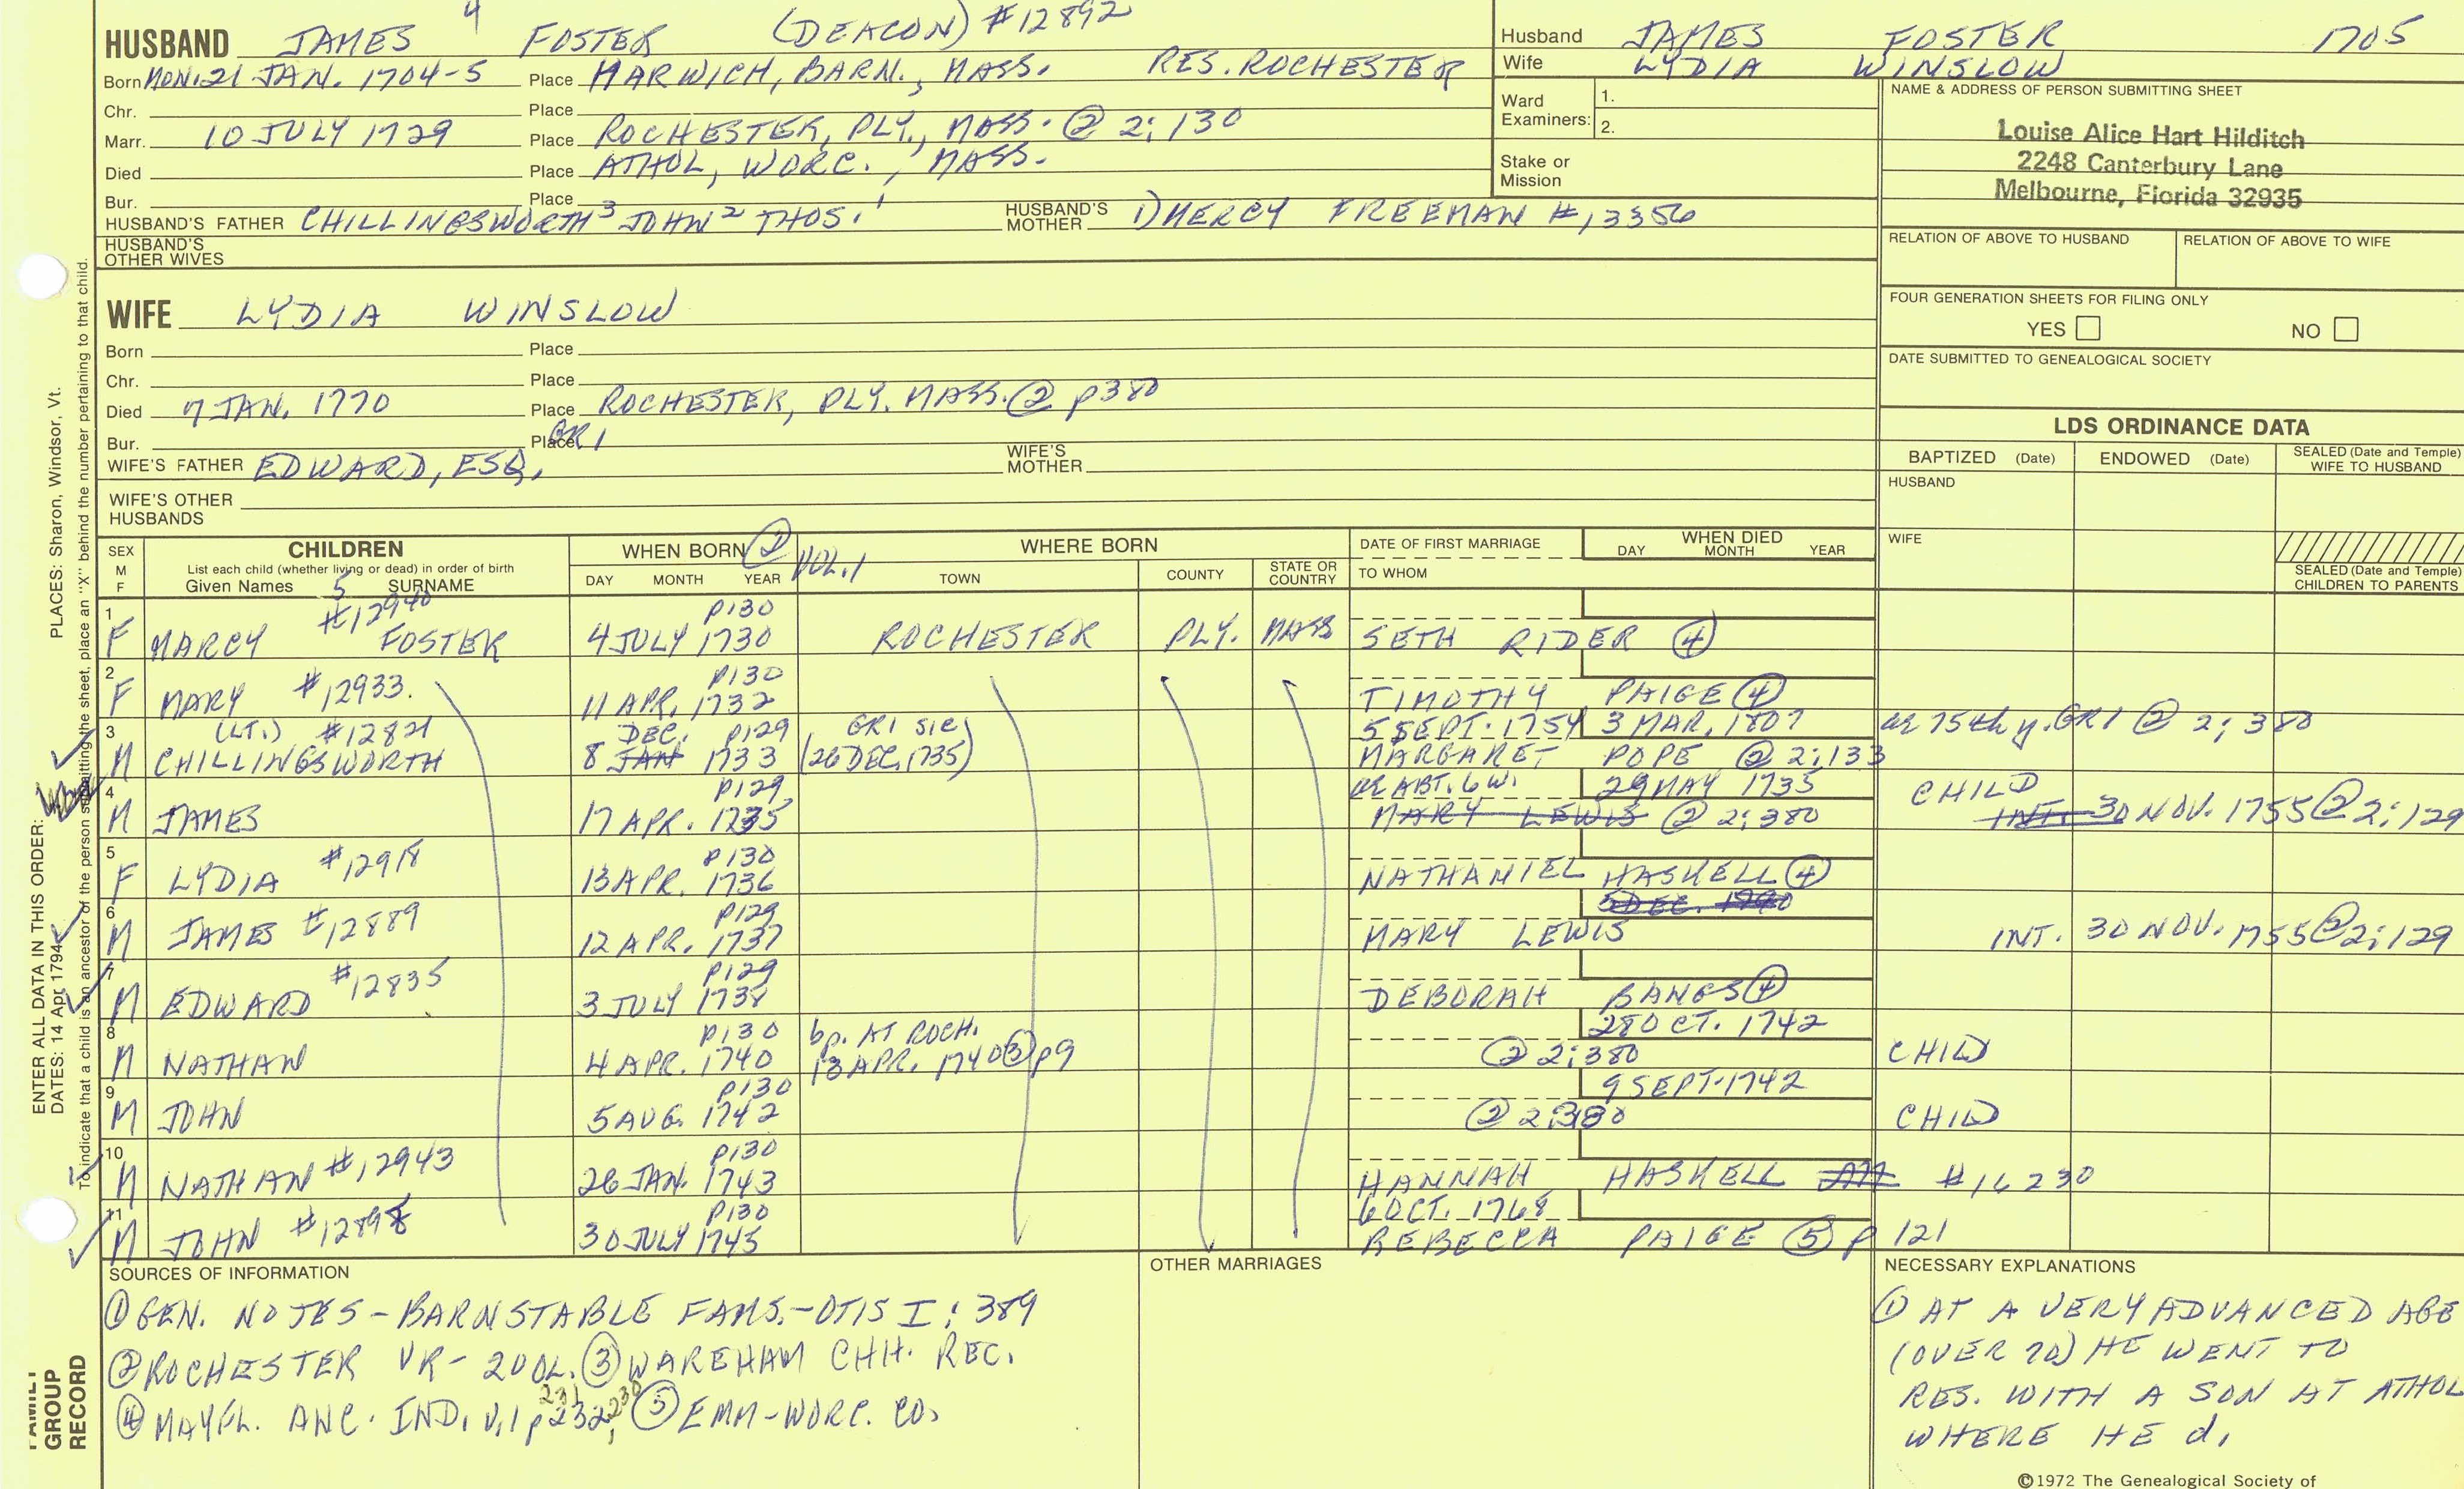 HUSBAND JAMES 4 FOSTER (DEACON) #12892
Born MON. 21 JAN. 1704-5 Place HARWICH, BARN., MASS. RES. ROCHESTER
Chr. Place
Marr. 10 JULY 1729 Place ROCHESTER, PLY., MASS. @ 2:130
Died Place ATHOL, WORC., MASS.
Bur. Place
HUSBAND'S FATHER CHILLINGSWORTH 3 JOHN 2 THOS. 1 HUSBAND'S MOTHER 1) MERCY FREEMAN #13356
HUSBAND'S OTHER WIVES
Husband JAMES FOSTER 1705
Wife LYDIA WINSLOW
Ward Examiners: 1.
2.
Stake or Mission
NAME & ADDRESS OF PERSON SUBMITTING SHEET
Louise Alice Hart Hilditch
2248 Canterbury Lane
Melbourne, Florida 32935
RELATION OF ABOVE TO HUSBAND RELATION OF ABOVE TO WIFE
FOUR GENERATION SHEETS FOR FILING ONLY
YES NO
DATE SUBMITTED TO GENEALOGICAL SOCIETY
WIFE LYDIA WINSLOW
Born Place
Chr. Place
Died 7 JAN. 1770 Place ROCHESTER, PLY. MASS. ② p380
Bur. Place GR1
WIFE'S FATHER EDWARD, ESQ. WIFE'S MOTHER
WIFE'S OTHER HUSBANDS
LDS ORDINANCE DATA
BAPTIZED (Date) ENDOWED (Date) SEALED (Date and Temple) WIFE TO HUSBAND
HUSBAND
WIFE
SEALED (Date and Temple) CHILDREN TO PARENTS
SEX M F CHILDREN WHEN BORN ② VOL. 1 WHERE BORN DATE OF FIRST MARRIAGE WHEN DIED
List each child (whether living or dead) in order of birth
Given Names 5 SURNAME DAY MONTH YEAR TOWN COUNTY STATE OR COUNTRY TO WHOM DAY MONTH YEAR
1 #12940 P130
F MARCY FOSTER 4 JULY 1730 ROCHESTER PLY. MASS SETH RIDER ④
2 P130
F MARY #12933. 11 APR. 1732 TIMOTHY PAIGE ④
3 (LT.) #12821 DEC. P129 GR1 SIC 5 SEPT. 1754 3 MAR. 1807 ae 75th y. GR1 @ 2; 380
M CHILLINGSWORTH 8 JAN 1733 (26 DEC. 1735) MARGARET POPE @ 2:133
4 P129 ae ABT. 6 W. 29 MAY 1735 CHILD
M JAMES 17 APR. 1735 MARY LEWIS @ 2:380 INT. 30 NOV. 1755 @ 2:129
5 P130
F LYDIA #12918 13 APR. 1736 NATHANIEL HASKELL ④
6 P129
M JAMES #12889 12 APR. 1737 MARY LEWIS INT. 30 NOV. 1755 @ 2:129
7 P129
M EDWARD #12835 3 JULY 1738 DEBORAH BANGS ④
8 P130 bp. AT ROCH. 28 OCT. 1742
M NATHAN 4 APR. 1740 13 APR. 1740 ③ p9 @ 2:380 CHILD
9 P130 9 SEPT. 1742
M JOHN 5 AUG. 1742 @ 2:380 CHILD
10 P130
M NATHAN #12943 26 JAN. 1743 HANNAH HASKELL #16230
11 P130 6 OCT. 1768
M JOHN #12898 30 JULY 1745 REBECCA PAIGE ⑤ p 121
SOURCES OF INFORMATION
① GEN. NOTES - BARNSTABLE FAMS. - OTIS I: 389
② ROCHESTER VR - 2 VOL. ③ WAREHAM CHH. REC.
④ MAYFL. ANC. IND. V.1 p 231 232, 230 ⑤ EMM - WORC. CO.
OTHER MARRIAGES
NECESSARY EXPLANATIONS
① AT A VERY ADVANCED AGE
(OVER 70) HE WENT TO
RES. WITH A SON AT ATHOL
WHERE HE d.
©1972 The Genealogical Society of
ENTER ALL DATA IN THIS ORDER:
DATES: 14 Apr 1794
PLACES: Sharon, Windsor, Vt.
To indicate that a child is an ancestor of the person submitting the sheet, place an "X" behind the number pertaining to that child.
FAMILY GROUP RECORD